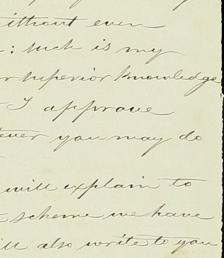 without even
: such is my
superior knowledge
I approve
ever you may do
will explain to
scheme we have
will also write to you